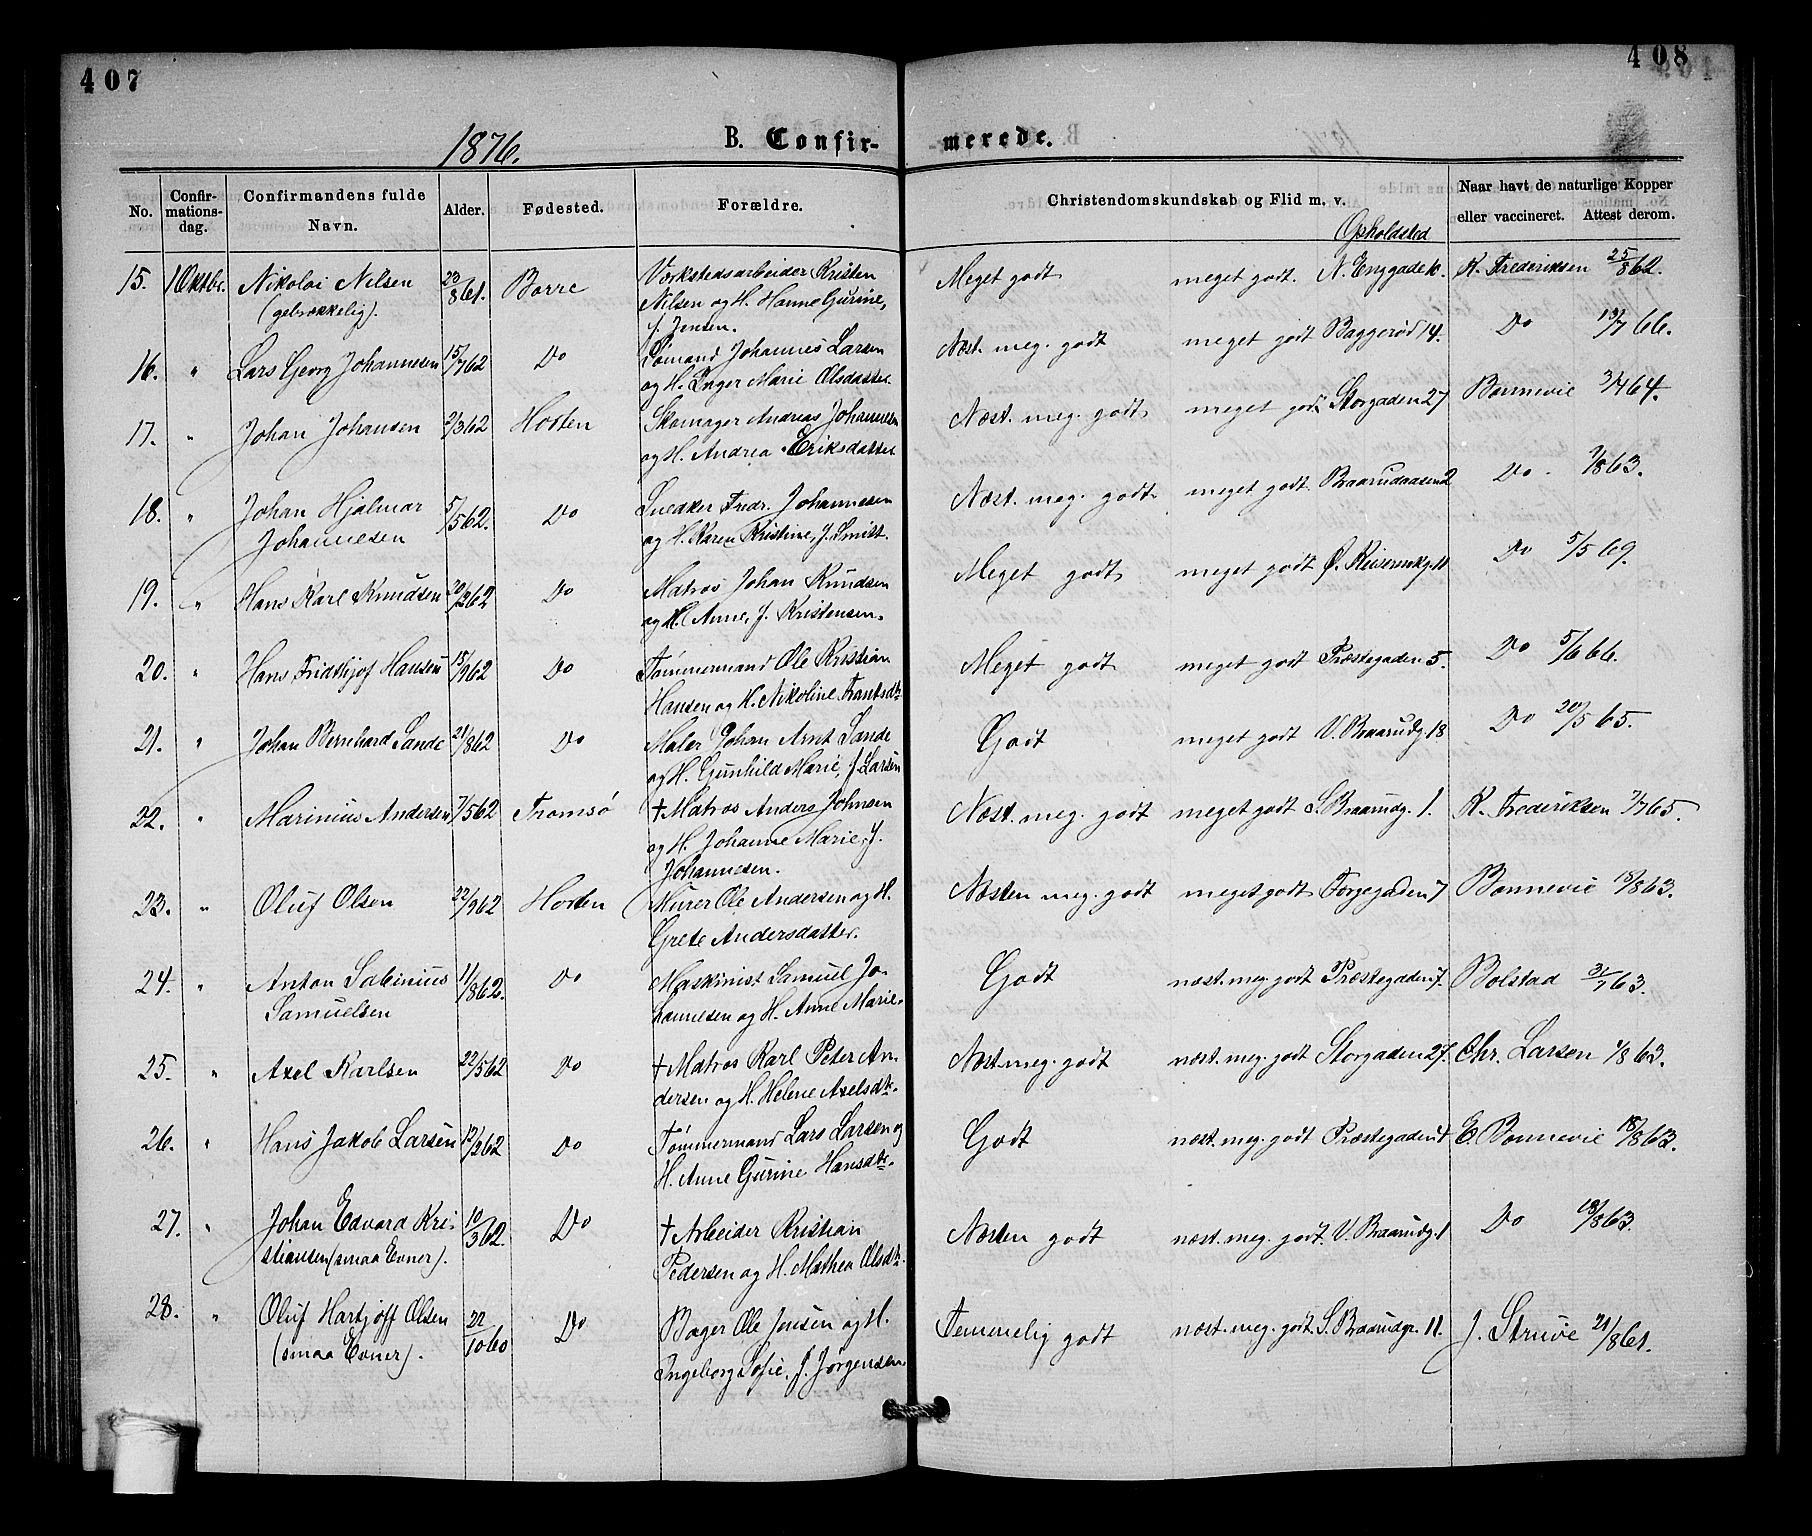 407
408
1876.
B. Confir-
merede.
No.
Confir-
mations-
dag.
Confirmandens fulde
Navn.
Alder.
Fødested.
Forældre.
Christendomskundskab og Flid m. v.
Opholdsted
Naar havt de naturlige Kopper
eller vaccineret. Attest derom.
15. 1 Oktbr. Nikolai Nilsen 23/861. Borre Værkstedsarbeider Kristen Meget godt meget godt. N. Enggade 10. K. Frederiksen 25/862.
(gebrækkelig). Nilsen og H. Hanne Gurine,
f. Jensen.
16. " Lars Georg Johannesen 15/762 Do Sømand Johannes Larsen Næst. meg. godt meget godt Baggerød 14. Do 13/7 66.
og H. Inger Marie Olsdatter.
17. " Johan Johansen 2/362 Horten Skomager Andreas Johannesen Næst. meg. godt meget godt Storgaden 27 Bonnevie 3/764.
og H. Andrea Eriksdatter
18. " Johan Hjalmar 5/562. Do Snedker Fredr. Johannesen Næst. meg. godt meget godt. Braarudaasen 2 Do 7/863.
Johannesen og H. Karen Kristine, f. Smitt.
19. " Hans Karl Knudsen 20/262 Do Matros Johan Knudsen Meget godt meget godt Ø. Keiserenkg. 11 Do 5/5 69.
og H. Anne, f. Kristensen.
20. " Hans Fridthjof Hansen 15/962 Do Tømmermand Ole Kristian Meget godt meget godt Præstegaden 5. Do 5/6 66.
Hansen og H. Nikoline Frantsdtr
21. " Johan Bernhard Sande 21/862 Do Maler Johan Arnt Sande Godt meget godt V. Braarudg. 18 Do 20/5 65.
og H. Gunhild Marie, f. Larsen
22. " Marinius Andersen 7/562 Tromsø † Matros Anders Johnsen Næst. meg. godt meget godt S. Braarudg. 1. K. Frederiksen 7/765.
og H. Johanne Marie, f.
Johannesen.
23. " Oluf Olsen 22/962 Horten Murer Ole Andersen og H. Næsten meg. godt meget godt Torvegaden 7 Bonnevie 18/863.
Grete Andersdatter.
24. " Anton Sabinius 11/862. Do Maskinist Samuel Jo- Godt næst. meg. godt Præstegaden 7. Bolstad 31/7 63.
Samuelsen hannesen og H. Anne Marie.
25. " Axel Karlsen 22/562 Do † Matros Karl Peter An- Næst. meg. godt næst. meg. godt Storgaden 27. Chr. Larsen 1/863.
dersen og H. Helene Axelsdtr.
26. " Hans Jakob Larsen 12/262 Do Tømmermand Lars Larsen og Godt næst. meg. godt Præstegaden E. Bonnevie 18/863.
H. Anne Gurine Hansdtr.
27. " Johan Edvard Kri- 10/362. Do † Arbeider Kristian Næsten godt næst. meg. godt. V. Braarudg. 1 Do 18/863.
stiansen (smaa Evner). Pedersen og H. Mathea Olsdtr.
28. " Oluf Hartjoff Olsen 22/1060 Do Bager Ole Jensen og H. Temmelig godt næst. meg. godt S. Braarudgr. 11. J. Struve 21/861.
(smaa Evner). Ingeborg Sofie, f. Jørgensen.